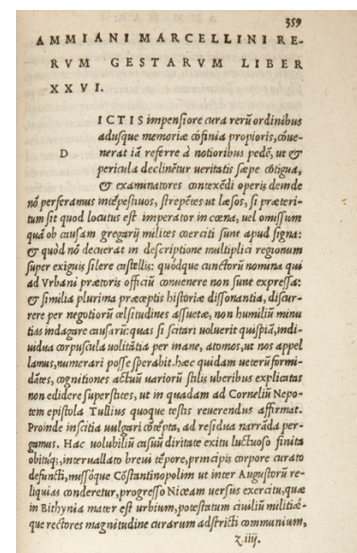 359
AMMIANI MARCELLINI RE-
RVM GESTARVM LIBER
XXVI.
ICTIS impensiore cura rerū ordinibus
adusque memoriæ cōfinia propioris, cōue-
D nerat iā referre à notioribus pedē, ut &
pericula declinētur ueritatis sæpe cōtigua,
& examinatores contexēdi operis deinde
nō perferamus intēpestiuos, strepētes ut læsos, si præteri-
tum sit quod locutus est imperator in cœna, uel omissum
quā ob causam gregarij milites coerciti sunt apud signa:
& quòd nō decuerat in descriptione multiplici regionum
super exiguis silere castellis: quódque cunctorū nomina qui
ad Vrbani prætoris officiū conuenere non sunt expressa:
& similia plurima præceptis historiæ dissonantia, discur-
rere per negotiorū celsitudines assuetæ, non humiliū minu
tias indagare causarū: quas si scitari uoluerit quispiā, indi-
uidua corpuscula uolitātia per inane, atomos, ut nos appel
lamus, numerari posse sperabit. hæc quidam ueterū formi-
dātes, cognitiones actuū uariorū stilis uberibus explicatas
non edidere superstites, ut in quadam ad Corneliū Nepo-
tem epistola Tullius quoque testis reuerendus affirmat.
Proinde inscitia uulgari cōtēpta, ad residua narrāda per-
gamus. Hac uolubiliū casuū diritate exitu luctuoso finita
obitúq;, interuallato breui tēpore, principis corpore curato
defuncti, missóque Cōstantinopolim ut inter Augustorū re-
liquias conderetur, progresso Niceam uersus exercitu, quæ
in Bithynia mater est urbium, potestatum ciuiliū militiæ-
que rectores magnitudine curarum adstricti communium,
z.iiij.